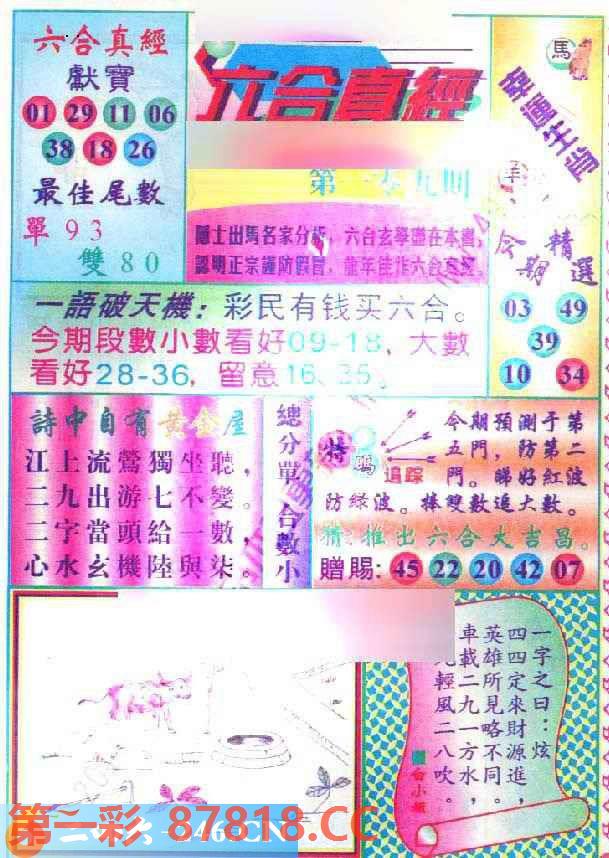 六合真經
獻寶
01 29 11 06
38 18 26
最佳尾數
單93
雙80
六合真經
隱士出馬名家分析，六合玄學盡在本書，
認明正宗謹防假冒，龍年佳作六合真經。
馬
幸運生肖
羊
今期精選
03 49
39
10 34
一語破天機：彩民有钱买六合。
今期段數小數看好09-18，大數
看好28-36，留意16、35。
詩中自有黃金屋
江上流鶯獨坐聽，
二九出游七不變。
二字當頭給一數，
心水玄機陸與柒。
總分單
合數小
特碼
追踪
今期預測于第
五門，防第二
門。睇好紅波
防綠波。捧雙數追大數。
猜:推出六合大吉昌。
贈賜：45 22 20 42 07
一字之曰：炫
四四定來財源進，
英雄所見略不同。
車載二九一方水，
輕風二八吹。
87818.CC